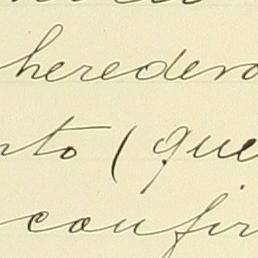 heredero
nto (que
confir